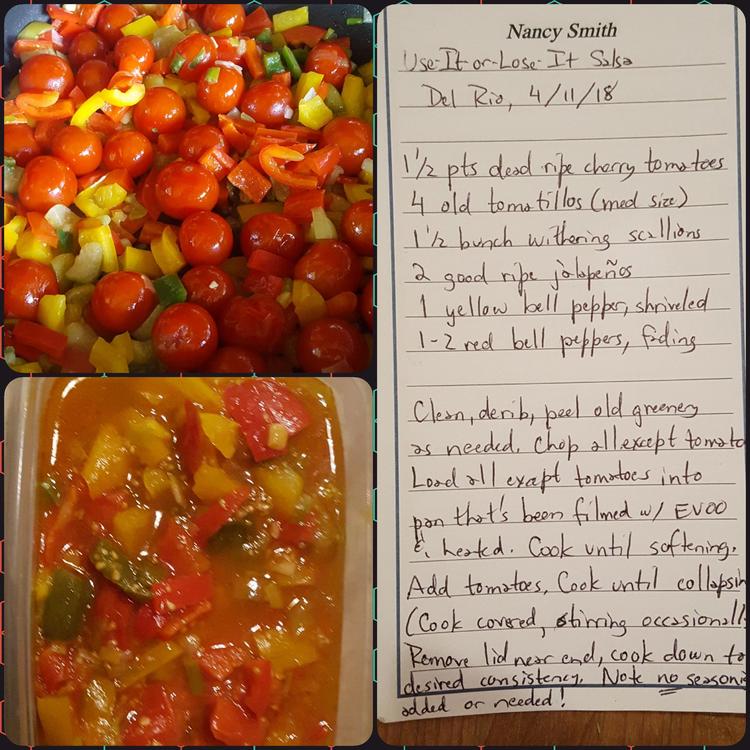 Nancy Smith
Use-It-or-Lose-It Salsa
Del Rio, 4/11/18
1 1/2 pts dead ripe cherry tomatoes
4 old tomatillos (med size)
1 1/2 bunch withering scallions
2 good ripe jalapeños
1 yellow bell pepper, shriveled
1-2 red bell peppers, fading
Clean, derib, peel old greenery
as needed. Chop all except tomato
Load all except tomatoes into
pan that's been filmed w/ EVOO
& heated. Cook until softening.
Add tomatoes, Cook until collapsin
(Cook covered, stirring occasionall
Remove lid near end, cook down to
desired consistency. Note no seasoni
added or needed!